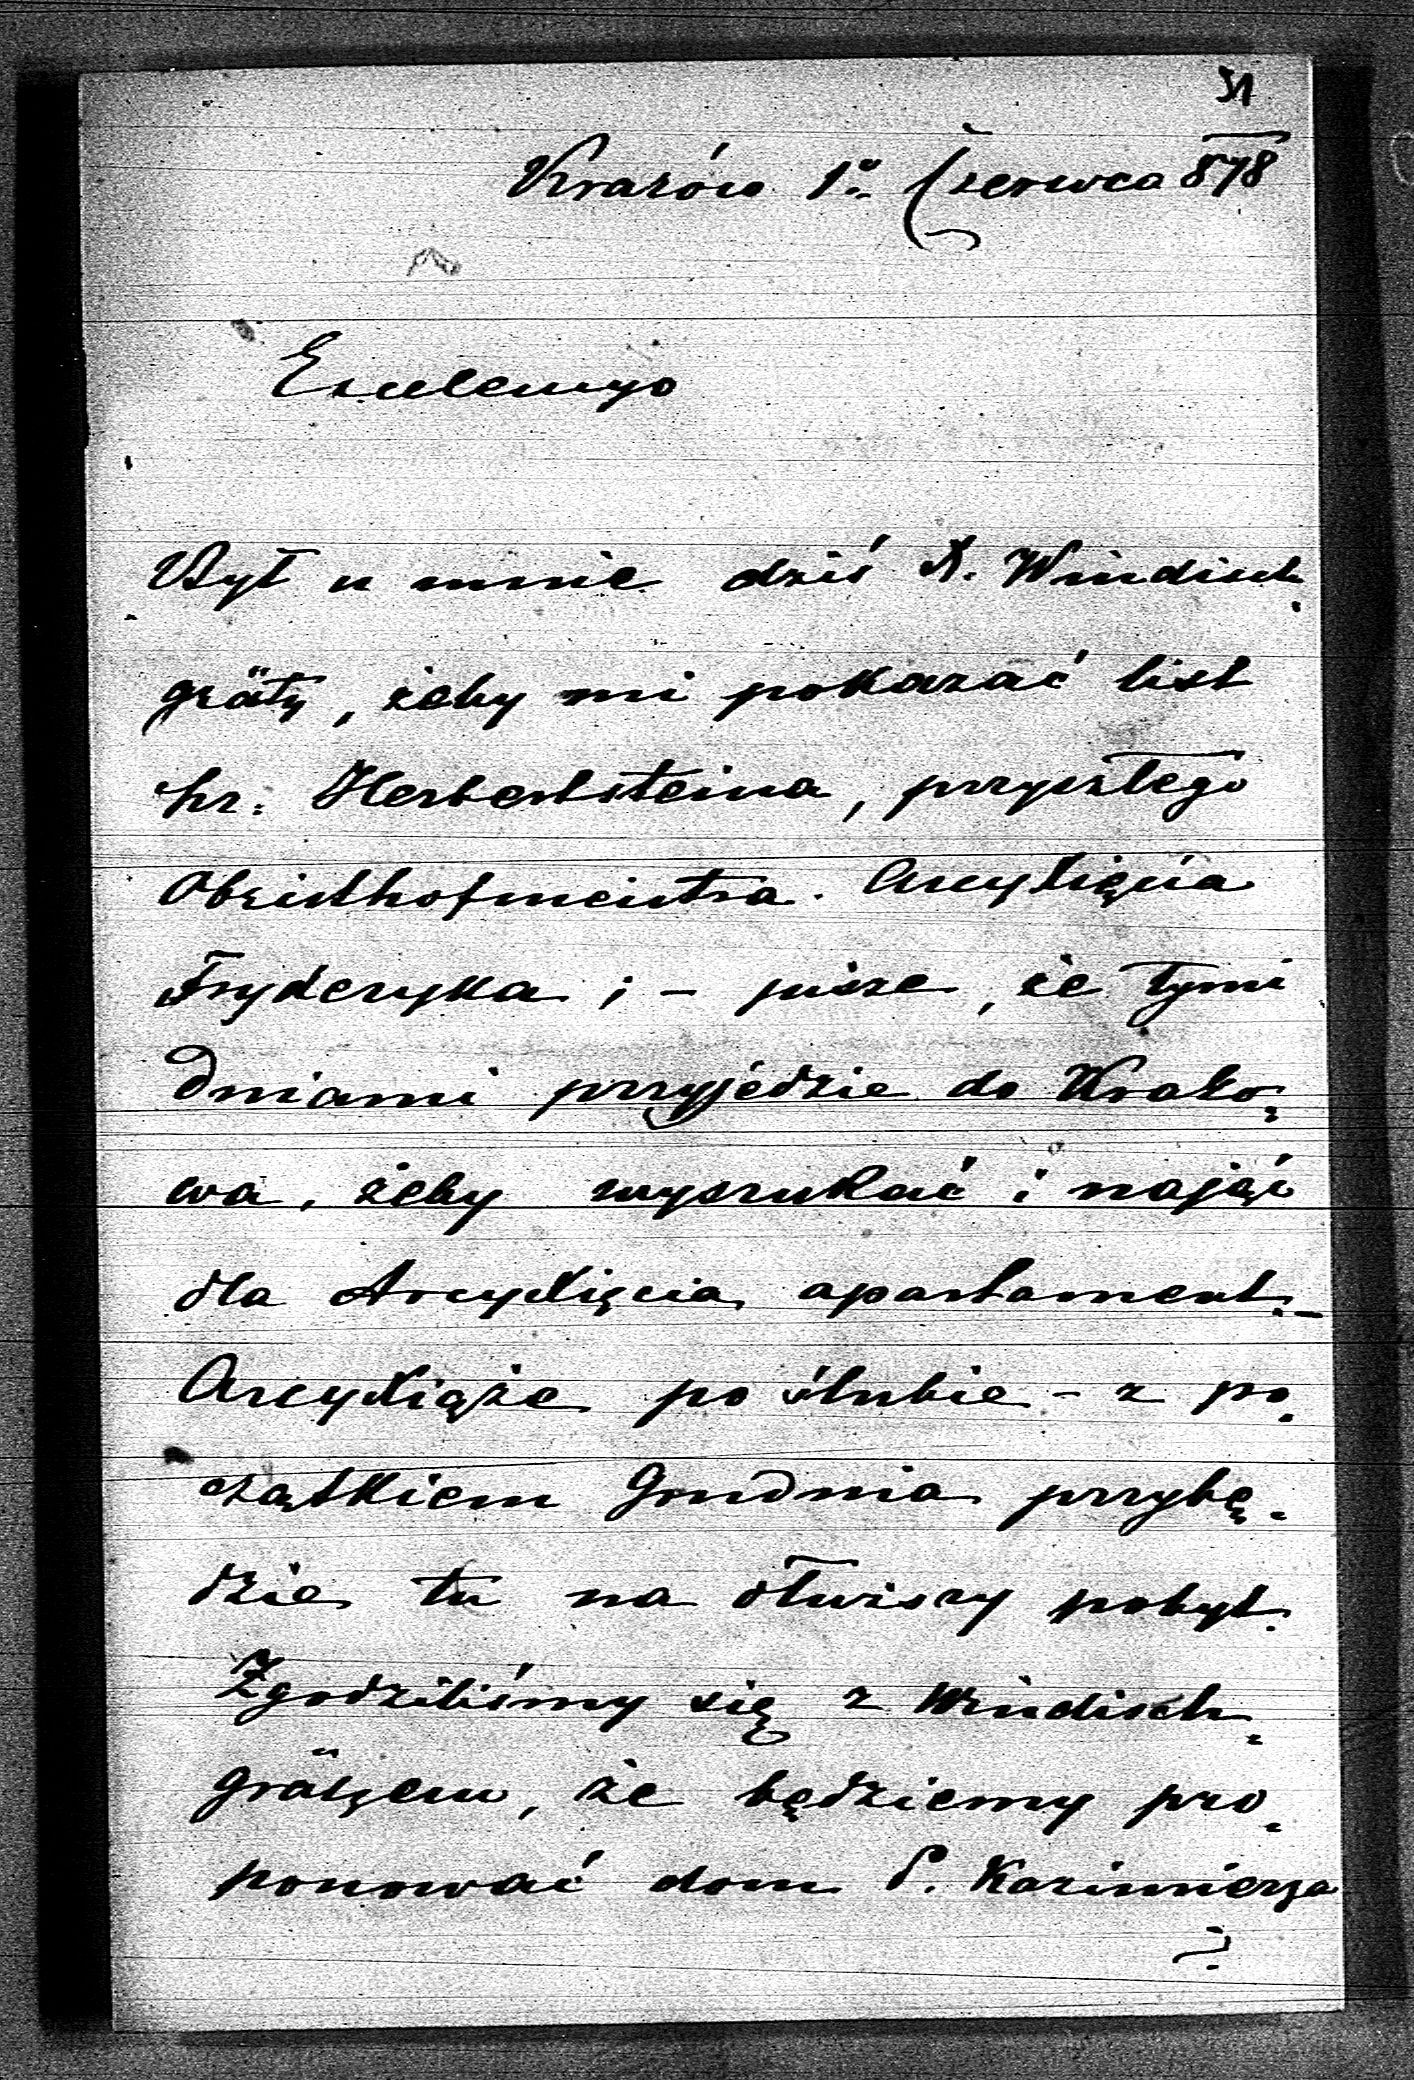 51
Kraków 1º Czerwca 878
Excelencyo
Był u mnie dziś X. Windisch
grätz, żeby mi pokazać list
hr. Herbertsteina, przyszłego
Obersthofmeistra Arcyxięcia
Fryderyka ; – pisze, że tymi
Dniami przyjedzie do Krako,
wa, żeby wyszukać i nająć
dla Arcyxięcia apartament. –
Arcyxiąże po ślubie – z po,
czątkiem Grudnia przybę,
dzie tu na dłuższy pobyt.
Zgodziliśmy się z Windisch,
grätzem, że będziemy pro,
ponować dom P. Kazimierza